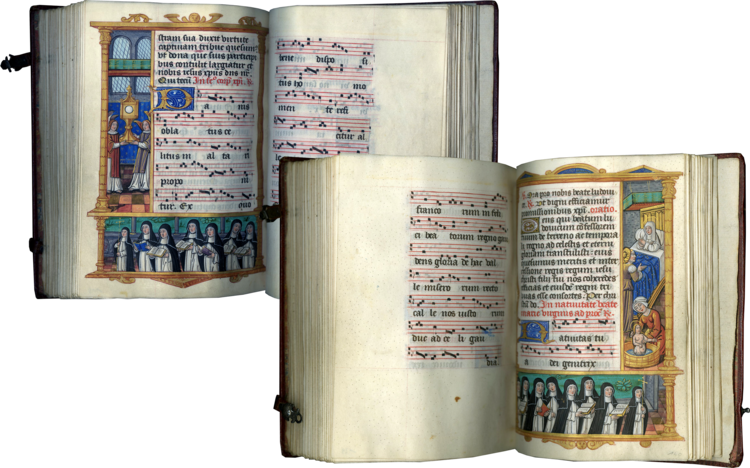 stram sua duxit virtute
captivam tribue quesumꝰ
vt dona que suis particip
bus contulit largiatur et
nobis iesus xp̄us dn̄s nr̄.
Qui tecū In fe corp̄ xp̄i. R.
P a nis
obla tus ce
litus in al ta ri
propo ni
tur. Ex quo
tene dispo si
tus ho mo
men te refi
citur al
franco rum in feli
ci bea torum regno gau
dens gloria de hac val
le misero rum recto
cal le nos iusto rum
duc ad ce li gau
dia
Ora pro nobis beate ludoui
ce. R. Vt digni efficiamur
promissionibus xp̄i. oratio.
Deus qui beatum lu
douicum cōfessorem
tuum de terreno ac tempora
li regno ad celestis et eterni
gloriam transtulisti: eius
quesumus meritis et inter
cessione regis regum iesu
christi filii tui nos coheredes
efficias et eiusdē regni tri
buas esse consortes. Per eun
dū do. In natiuitate beate
marie virginis ad proc̄ R.
N atiuitas tu
a dei genitrix